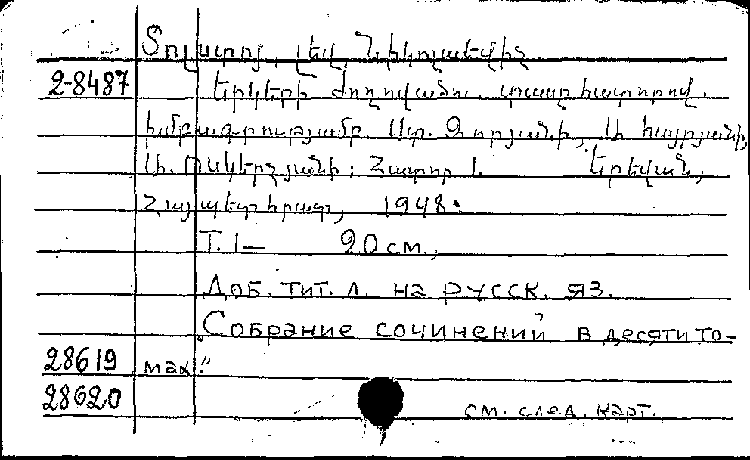 Տոլստոյ, Լև Նիկոլաևիչ
2-8487 Երկերի ժողովածու տասը հատորով.
Խմբագրությամբ Ստ. Զորյանի, Ս. Հայրյանի,
Հատոր 1. Երևան,
Հայպետհրատ, 1948.
Т. 1— 20 см.,
Доб. тит. л. на русск. яз.
"Собрание сочинений в десяти то-
28619 мах."
28620 см. след. карт.